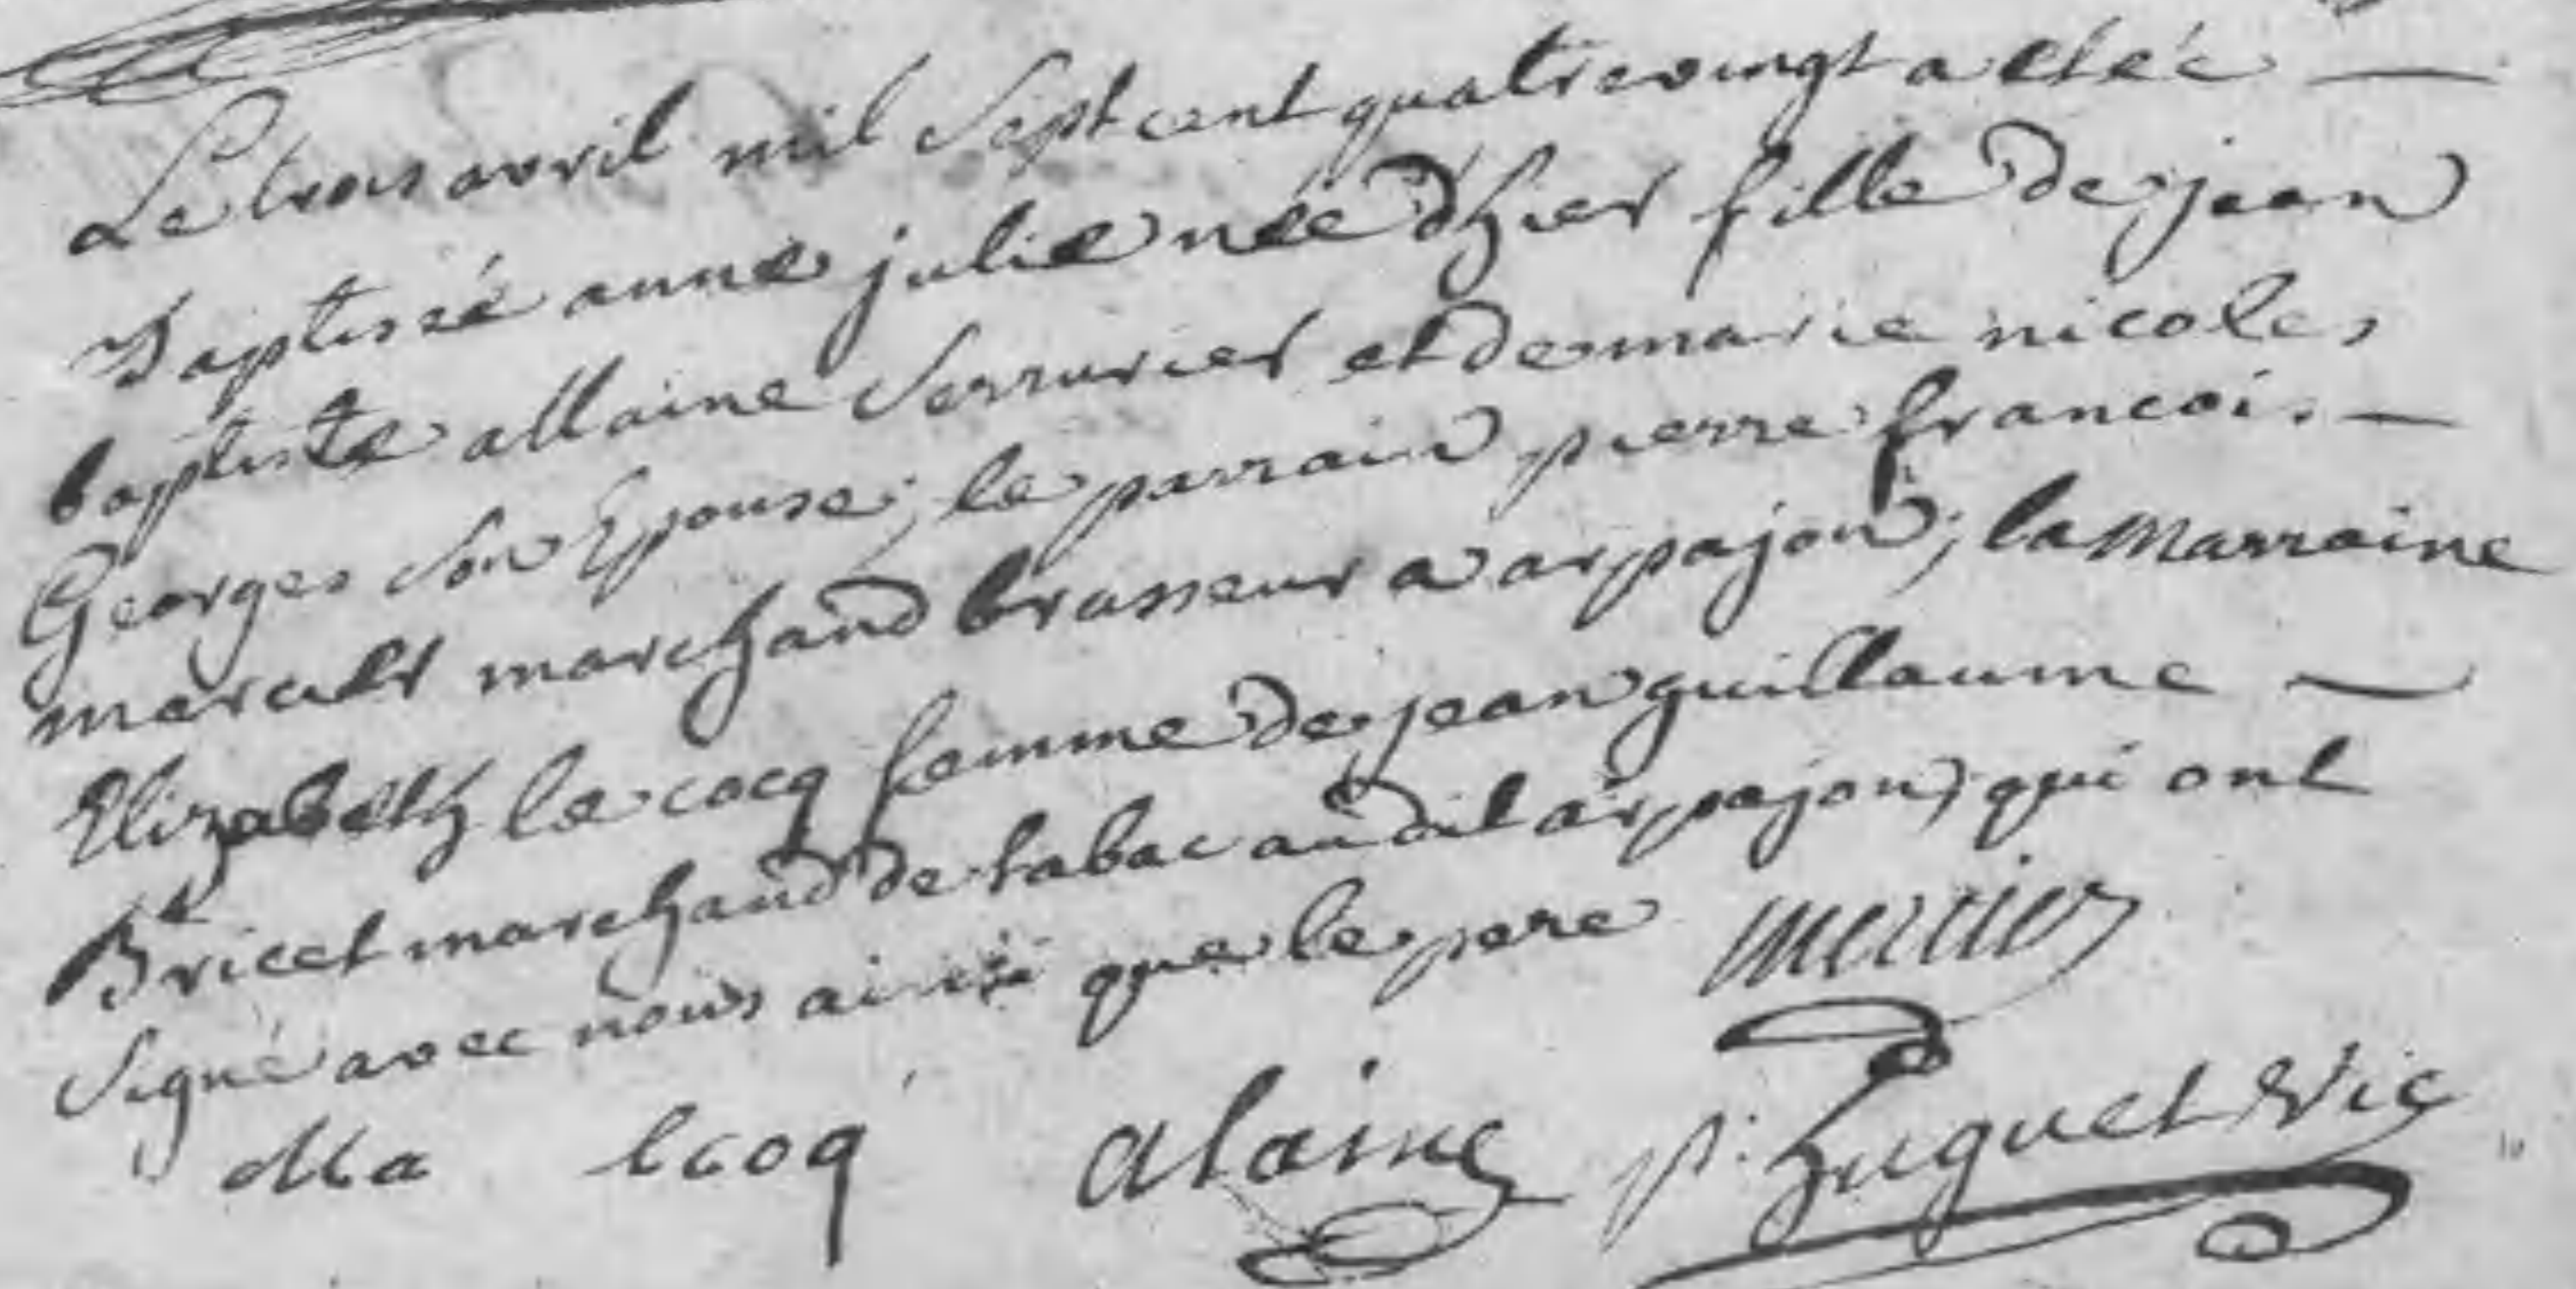 Le trois avril mil Sept cent quatre vingt a eteé
Baptisée anne julie née d'hier fille de jean
baptiste allaine Serrurier et de marie nicoles
Georges son Epouse; le parrain pierre francois
marchand brasseur a arpajon; la Marraine
Elizabeth le cocq femme de jean guillaume
Bricet marchand de tabac audit arpajon, qui ont
Signé avec nous ainsi que le pere mercier
lcoq alaine p. huguet Vic